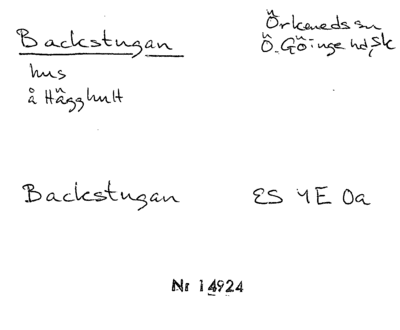 Backstugan
hus
å Hägghult
Örkeneds sn
Ö. Göinge hd, Sk
Backstugan
ES 4E 0a
Nr 14924